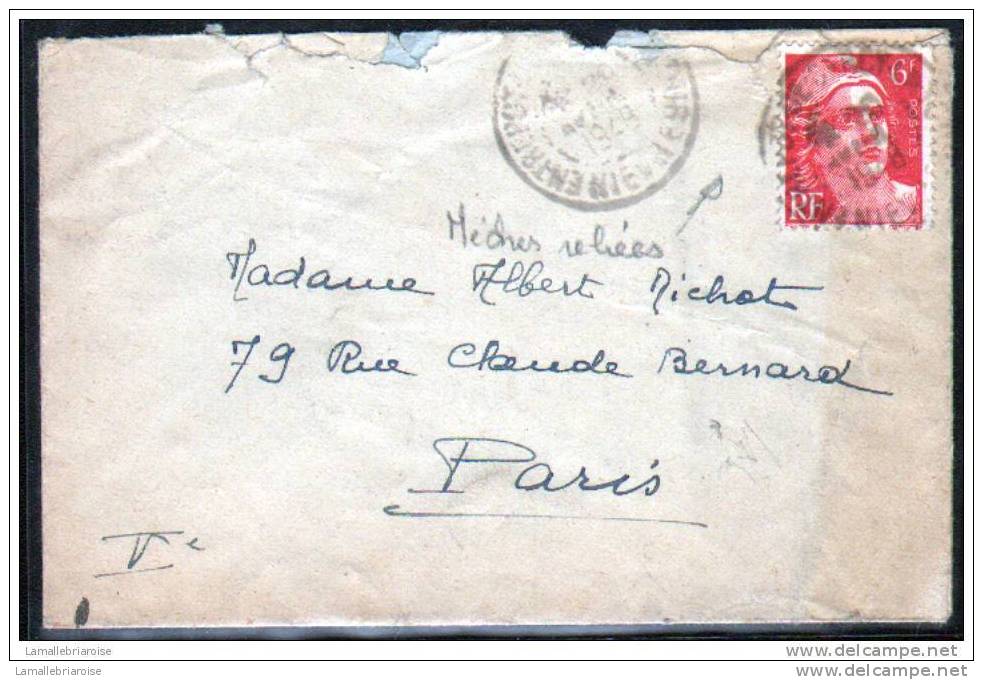 6F
POSTES
RF
Mèches reliées
Madame Albert Michot
79 Rue Claude Bernard
Paris
Ve
Lamallebriaroise
http://www.delcampe.net
Lamallebriaroise
http://www.delcampe.net